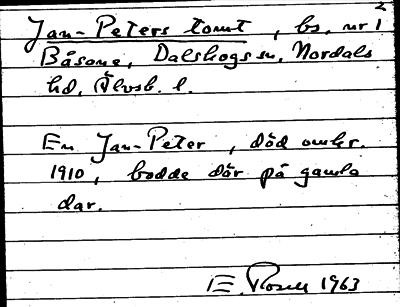 Jan-Peters tomt, bs. nr 1²
Båsane, Dalskogs sn, Nordals
hd, Älvsb. l.
En Jan-Peter, död omkr.
1910, bodde där på gamla
dar.
E. Rosell 1963